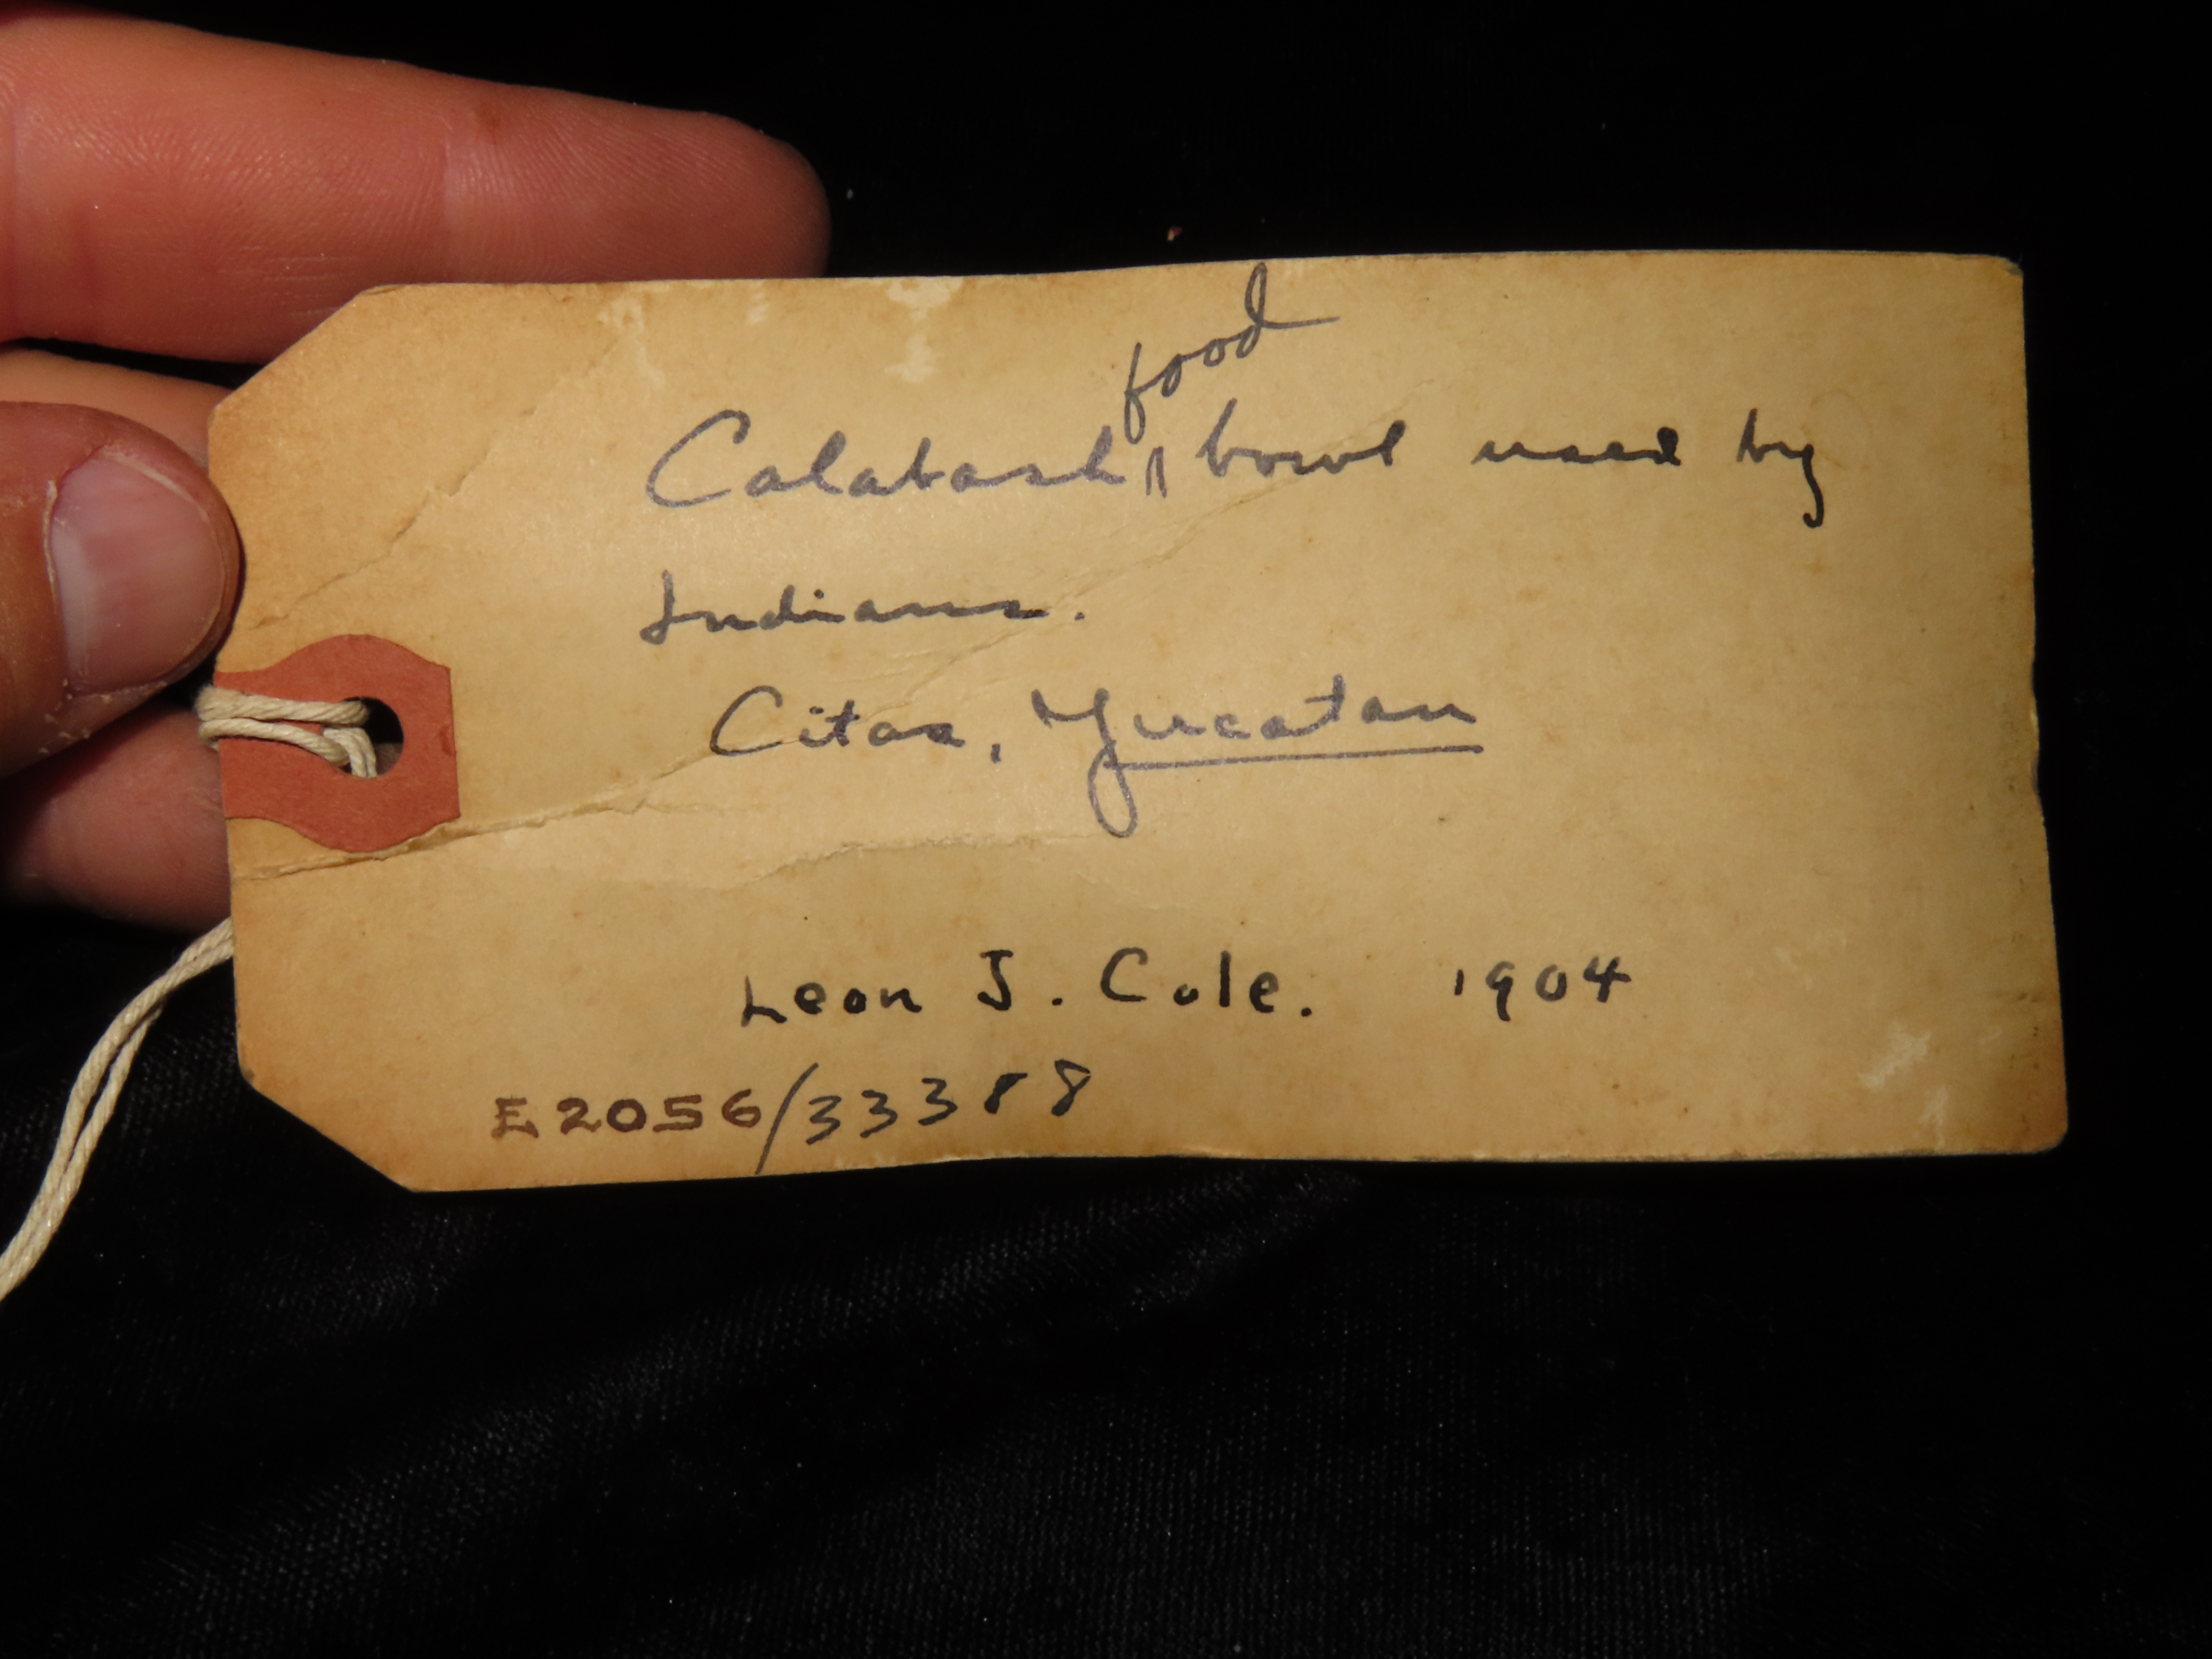 Calabash food bowl used by
Indians.
Citas, Yucatan
Leon J. Cole. 1904
E2056/33388